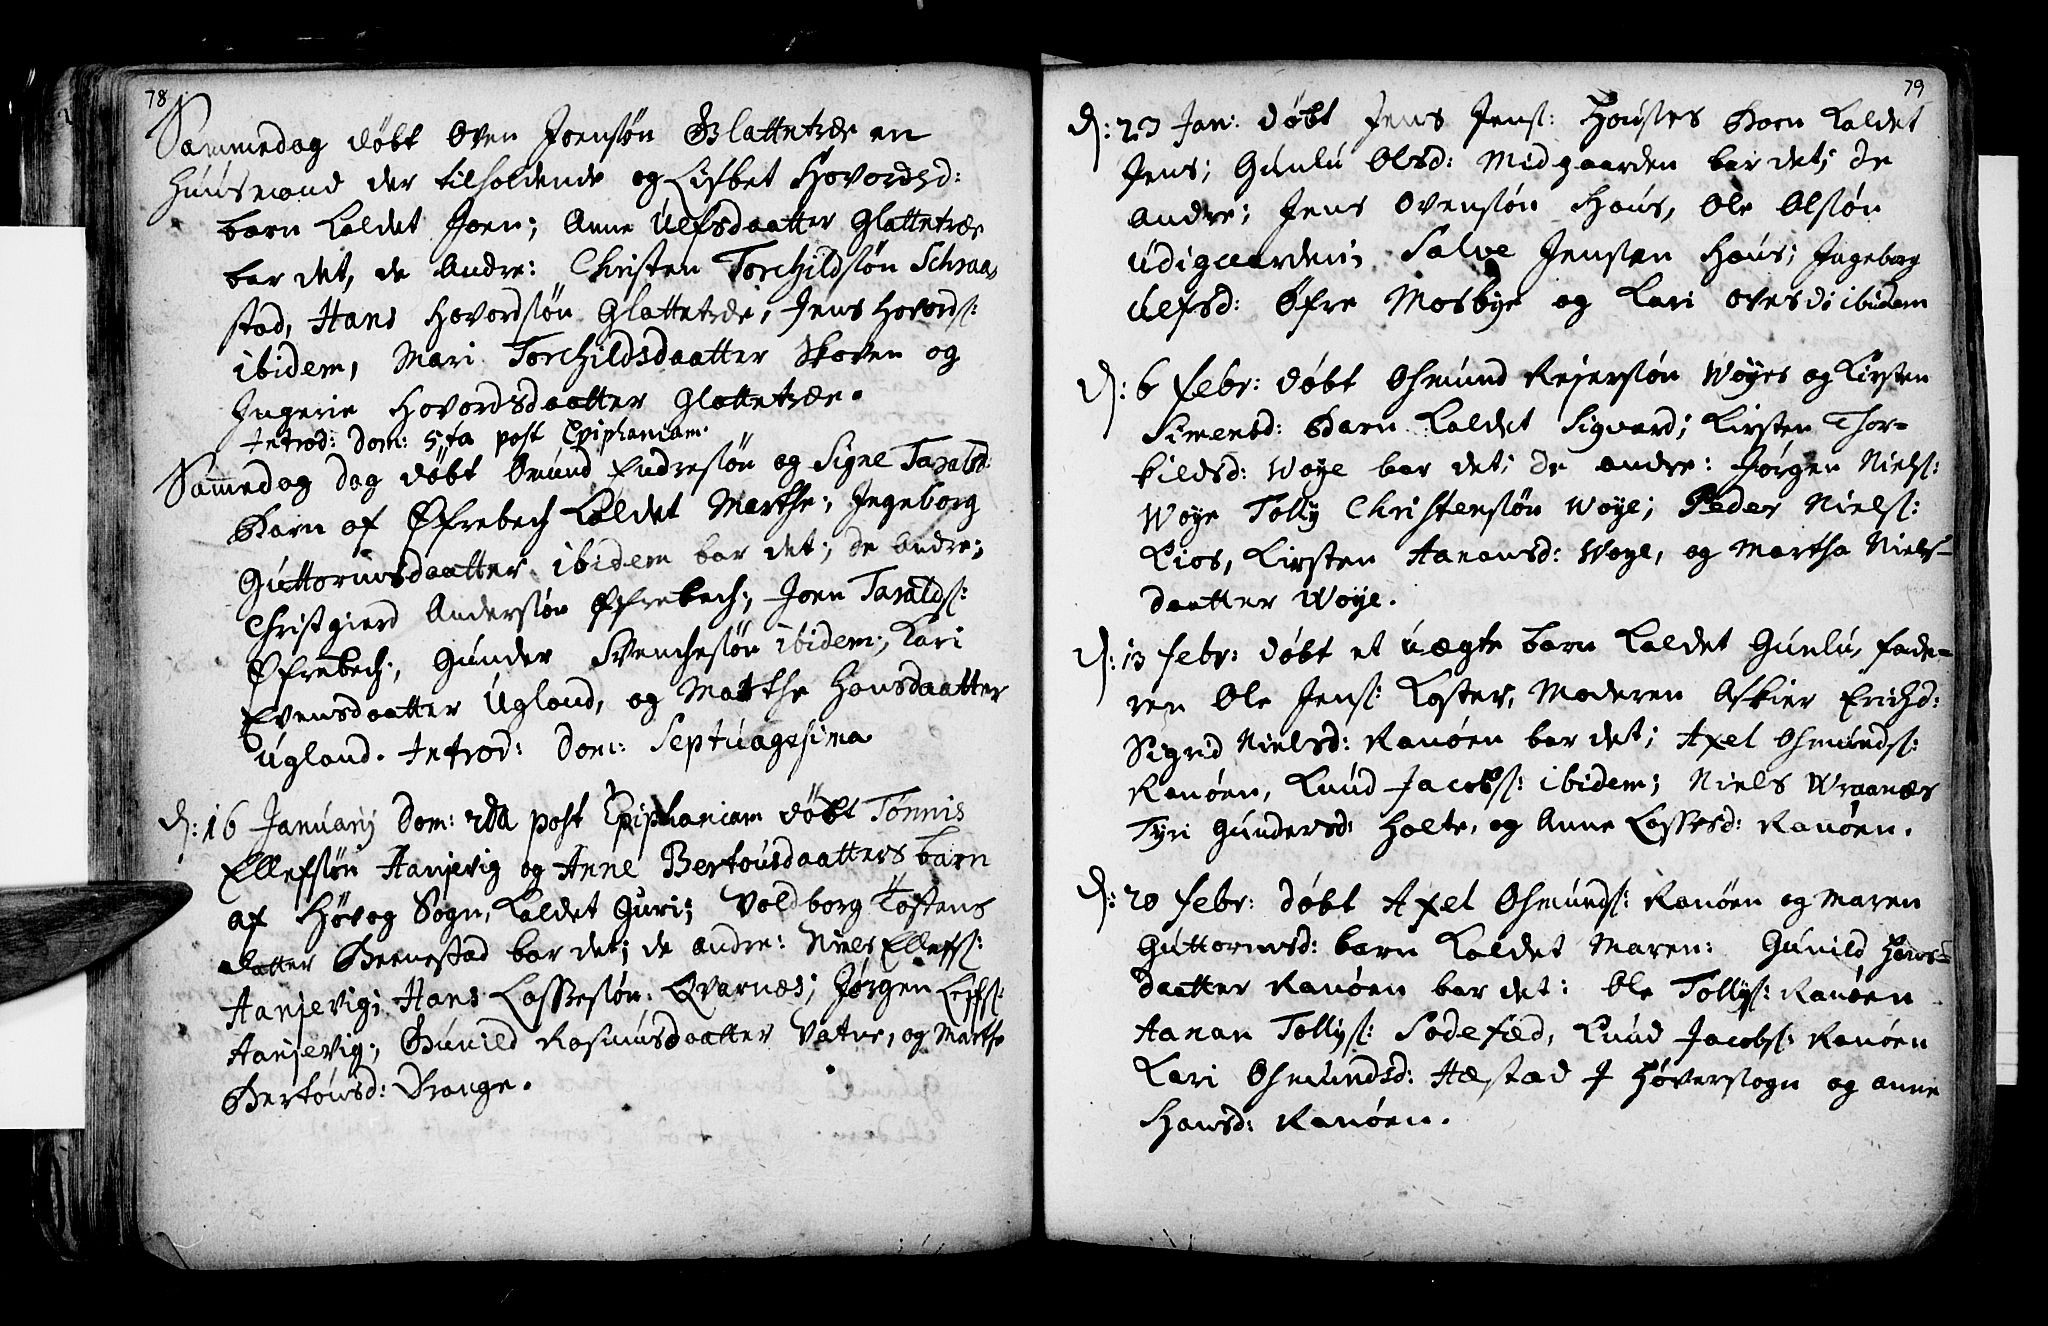 78
Sammedag døbt Oven Joensøn Glattetræe en
Huusmand der tilholdende og Lisbet Hovordsd:
barn kaldet Joen; Anne Ulfsdaatter Glattetræe
bar det, de Andre: Christen Torchildsøn Schraa-
stad, Hans Hovordsøn Glattetræe, Jens Hovords:
ibidem, Mari Torchildsdaatter Skoven og
Ingerie Hovordsdaatter Glattetræe.
Introd: Dom: 5ta post Epiphaniam.
Sammedag dag døbt Omund Endresøn og Signe Taralsd:
Barn af Øfrebech kaldet Marthe; Ingeborg
Guttormsdaatter ibidem bar det; de Andre;
Christgierd Andersøn Øfrebech; Joen Taralds:
Øfrebech; Gunder Svenchesøn ibidem; Kari
Evensdaatter Ugland, og Marthe Hansdaatter
Ugland. Introd: Dom: Septuagesima
D: 16 Januarij Dom: 2da post Epiphaniam døbt Tønnis
Ellefsøn Aanjevig og Anne Bertousdaatters barn
af Høvog Sogn, kaldet Guri; Voldborg Tostens
datter Beenestad bar det; de andre: Niels Ellefs:
Aanjevig; Hans Lassesøn Qvarnes; Jørgen Leffs:
Aanjevig; Gunild Rasmusdaatter Vatne, og Marthe
Bertousd: Drange.
79
D: 23 Jan: døbt Jens Jens: Houstes Barn kaldet
Jens; Gunlu Olsd: Midgaarden bar det; de
andre; Jens Ovensøn Hous, Ole Olsøn
Udigaarden; Salve Jensen Hous; Ingeborg
Ulfsd: Øfre Mosbye og Kari Ovesd: ibidem
D: 6 Febr: døbt Osmund Rejersøn Woyes og Kirsten
Simensd: Barn kaldet Sigvard; Kirsten Thor-
kildsd: Woye bar det; de andre: Jørgen Niels:
Woye Tolly Christensøn Woye; Peder Niels:
Kios, Kirsten Aanonsd: Woye, og Martha Niels-
daatter Woye.
D: 13 Febr: døbt et uægte barn kaldet Gunlu, fade-
ren Ole Jens: Koster, Moderen Askier Erichsd:
Sigrid Nielsd: Ranøen bar det; Axel Osmunds:
Ranøen, Knud Jacobs: ibidem; Niels Wraanæs
Tyri Gundersd: Holte, og Anne Lassesd: Ranøen.
D: 20 Febr: døbt Axel Osmunds: Ranøen og Maren
Guttormsd: barn kaldet Maren: Gunild Hans-
daatter Ranøen bar det: Ole Tollys: Ranøen
Aanan Tollys: Sodefæd, Knud Jacobs: Ranøen
Kari Osmundsd: Hæstad J Høversogn og Anne
Hansd: Ranøen.